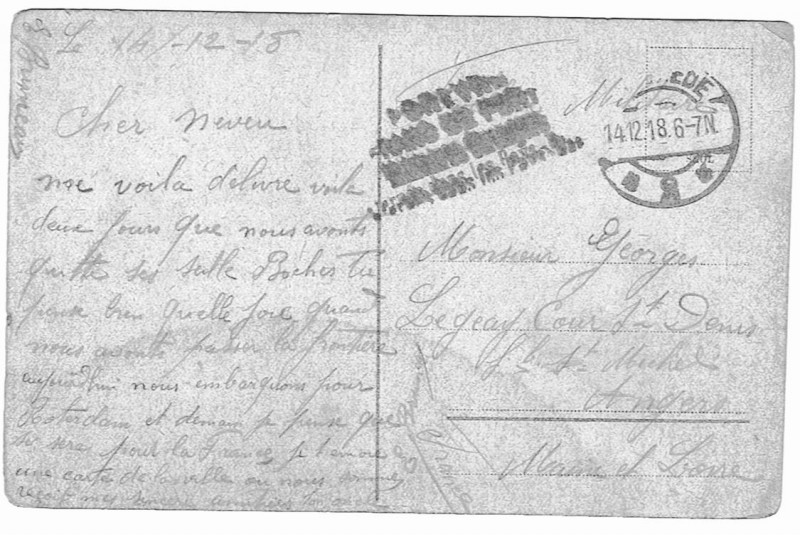 Le 14-12-18
Cher neveu
me voila délivré voila
deux jours que nous avonts
quitté ses salle Boches tu
pense bien quelle joie quand
nous avonts passer la frontière
aujourd'hui nous embarquons pour
Roterdam et demain je pense que
se seras pour la France, je t'envoie
une carte de la ville ou nous sommes
reçoit mes sincère amitiés ton oncle
Militaire
EDE
14.12.18.6-7N.
Monsieur Georges
Legeay Cour St Denis
St Michel
Angers
Maine et Loire